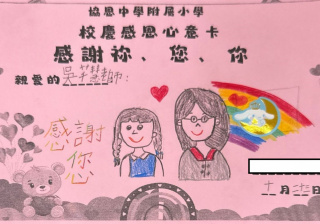 協恩中學附屬小學
校慶感恩心意卡
感謝祢、您、你
親愛的吳老師：
感謝
您
十月廿日